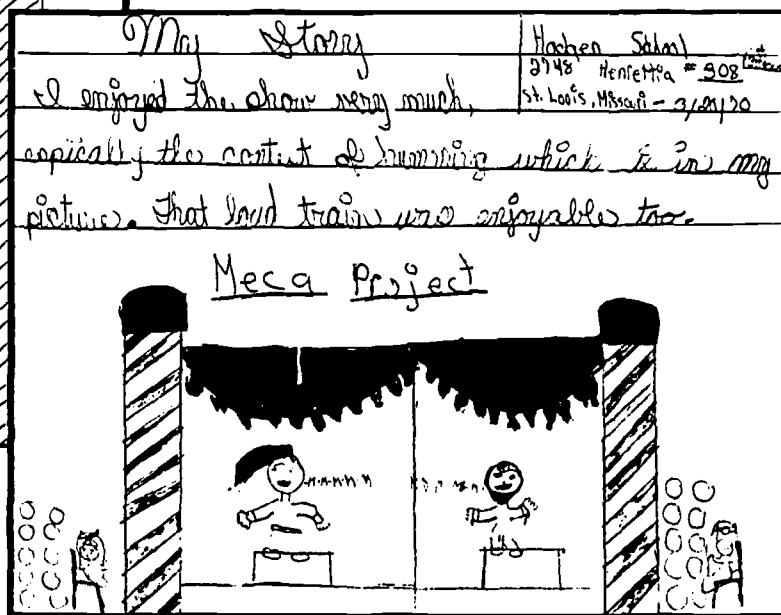 My Story
2748 Henrietta # 908
St. Louis, Missouri - 3/
I enjoyed the show very much,
espically the contest of humming which is in my
picture. That loud train was enjoyable too.
Meca Project
M.M.M.M.M